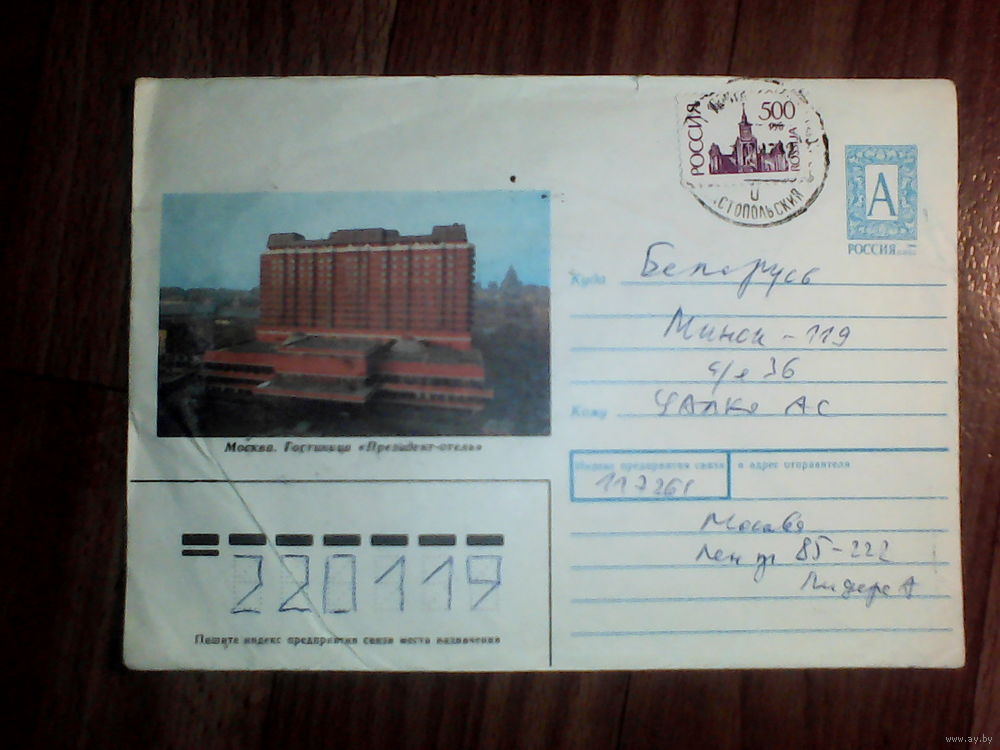 РОССИЯ
500
ROSSIJA
СТОПОЛЬСКИЙ
А
РОССИЯ
Куда Беларусь
Минск - 119
а/я 36
Кому АС
Москва. Гостиница «Президент-отель»
Индекс предприятия связи и адрес отправителя
117261
Москва
Лен пр 85-222
220119
Пишите индекс предприятия связи места назначения
www.ay.by